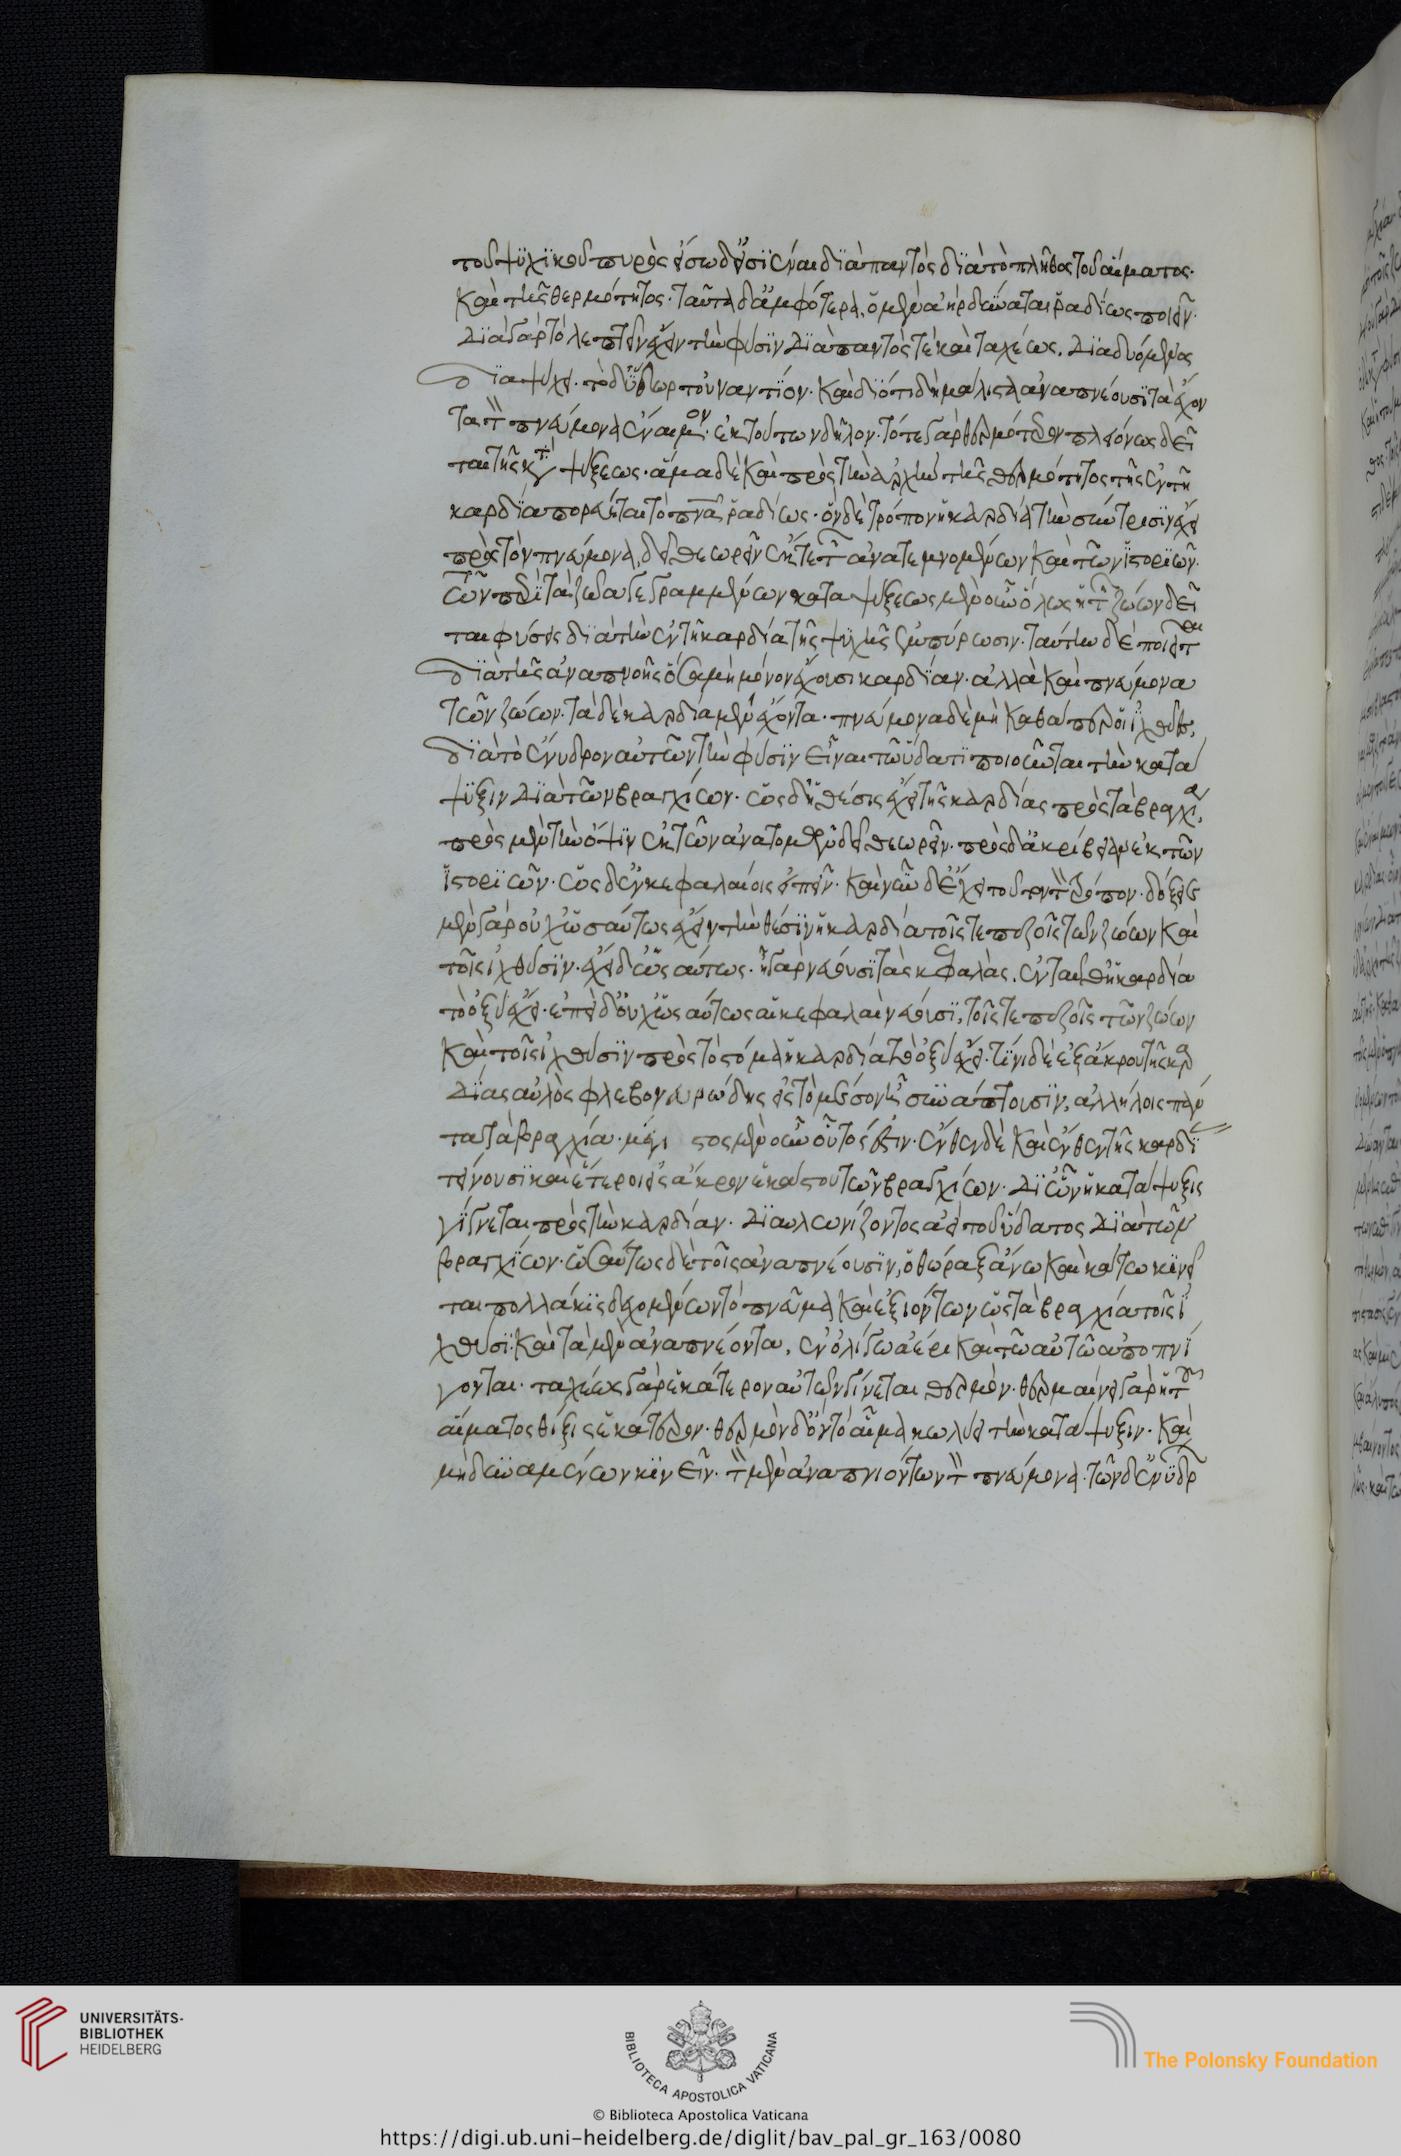 τοῦ ψυχικοῦ πυρὸς εἴσω δ' εἰσϊέναι διὰ παντὸς διὰ τὸ πλῆθος τοῦ αἵματος·
καὶ τῆς θερμότητος· ταῦτα δ' ἀμφότερα, ὁ μὲν ἀὴρ δύναται ῥαδίως ποιεῖν·
διὰ γὰρ τὸ λεπτὴν ἔχειν τὴν φύσιν διὰ παντός τε καὶ ταχέως, διαδυόμενος
διαψύχει· τὸ δ' ὕδωρ τοὐναντίον· καὶ διότι δὴ μάλιστα ἀναπνέουσι τὰ ἔχον
τα τὸν πνεύμονα ἔναιμον· ἐκ τούτων δῆλον· τό τε γὰρ θερμότερον πλείονως δεῖ
ται τῆς καταψύξεως· ἅμα δὲ καὶ πρὸς τὴν ἀρχὴν τῆς θερμότητος τῆς ἐν τῆ
καρδία πορεύεται τὸ πνα ῥαδίως· ὃν δὲ τρόπον ἡ καρδία τὴν σύντρισιν ἔχει
πρὸς τὸν πνεύμονα, δεῖ θεωρεῖν ἔκ τε τῶν ἀνατεμνομένων καὶ τῶν ἱστοριῶν·
τῶν περὶ τὰ ζῶα γεγραμμένων καταψύξεως μὲν οὖν ὅλως ἡ τῶν ζώων δεῖ
ται φύσις διὰ τὴν ἐν τῆ καρδία τῆς ψυχῆς ζωπύρωσιν· ταύτην δὲ ποιεῖται
διὰ τῆς ἀναπνοῆς ὅσα μὴ μόνον ἔχουσι καρδίαν· ἀλλὰ καὶ πνεύμονα
τῶν ζώων· τὰ δὲ καρδίαν μὲν ἔχοντα· πνεύμονα δὲ μὴ καθάπερ οἱ ἰχθύες,
διὰ τὸ ἔνυδρον αὐτῶν τὴν φύσιν εἶναι τῶ ὕδατι ποιοῦνται τὴν κατά
ψυξιν διὰ τῶν βραγχίων· ὡς δ' ἡ θέσις ἔχει τῆς καρδίας πρὸς τὰ βράγχια,
πρὸς μὲν τὴν ὄψιν ἐκ τῶν ἀνατομῶν δεῖ θεωρεῖν· πρὸς δ' ἀκρίβειαν ἐκ τῶν
ἱστοριῶν· ὡς δ' ἐν κεφαλαίοις εἰπεῖν· καὶ νῦν δ' ἔχει τοῦτον τὸν τρόπον· δόξειε
μὲν γὰρ οὐχ ὡσαύτως ἔχειν τὴν θέσιν ἡ καρδία τοῖς τε πεζοῖς τῶν ζώων καὶ
τοῖς ἰχθύσιν· ἔχει δ' ὡς αὔτως· ἧ γὰρ νεύουσι τὰς κεφαλὰς, ἐνταῦθ' ἡ καρδία
τὸ ὀξὺ ἔχει· ἐπεὶ δ' οὐχ ὡς αὔτως αἱ κεφαλαὶ νεύουσι, τοῖς τε πεζοῖς τῶν ζώων
καὶ τοῖς ἰχθύσιν πρὸς τὸ στόμα ἡ καρδία τὸ ὀξὺ ἔχει· τείνει δὲ ἐξ ἄκρου τῆς καρ
δίας αὐλὸς φλεβονευρώδης εἰς τὸ μέσον ἧ συνάπτουσιν, ἀλλήλοις πάν
τα τὰ βράγχια· μέγιστος μὲν οὖν οὗτός ἐστιν· ἔνθεν δὲ καὶ ἔνθεν τῆς καρδί
τείνουσι καὶ ἕτεροι εἰς ἄκρον ἑκάστου τῶν βραγχίων· δι' ὧν ἡ κατάψυξις
γίγνεται πρὸς τὴν καρδίαν· διαυλωνίζοντος ἀεὶ τοῦ ὕδατος διὰ τῶν
βραγχίων· ὡσαύτως δὲ τοῖς ἀναπνέουσιν, ὁ θώραξ ἄνω καὶ κάτω κινεῖ
ται πολλάκις δεχομένων τὸ πνεῦμα καὶ ἐξιόντων ὡς τὰ βραγχία τοῖς ἰ
χθύσι· καὶ τὰ μὲν ἀναπνέοντα, ἐν ὀλίγω ἀέρι καὶ τῶ αὐτῶ ἀποπνί
γονται· ταχέως γὰρ ἑκάτερον αὐτῶν γίνεται θερμόν· θερμαίνει γὰρ ἡ τοῦ
αἵματος θίξις ἑκάτερον· θερμὸν δ' ὂν τὸ αἷμα κωλύει τὴν κατάψυξιν· καὶ
μὴ δυναμένων κινεῖν· τῶν μὲν ἀναπνεόντων τὸν πνεύμονα· τῶν δ' ἐνύδρ
UNIVERSITÄTS-
BIBLIOTHEK
HEIDELBERG
BIBLIOTECA APOSTOLICA VATICANA
The Polonsky Foundation
© Biblioteca Apostolica Vaticana
https://digi.ub.uni-heidelberg.de/diglit/bav_pal_gr_163/0080